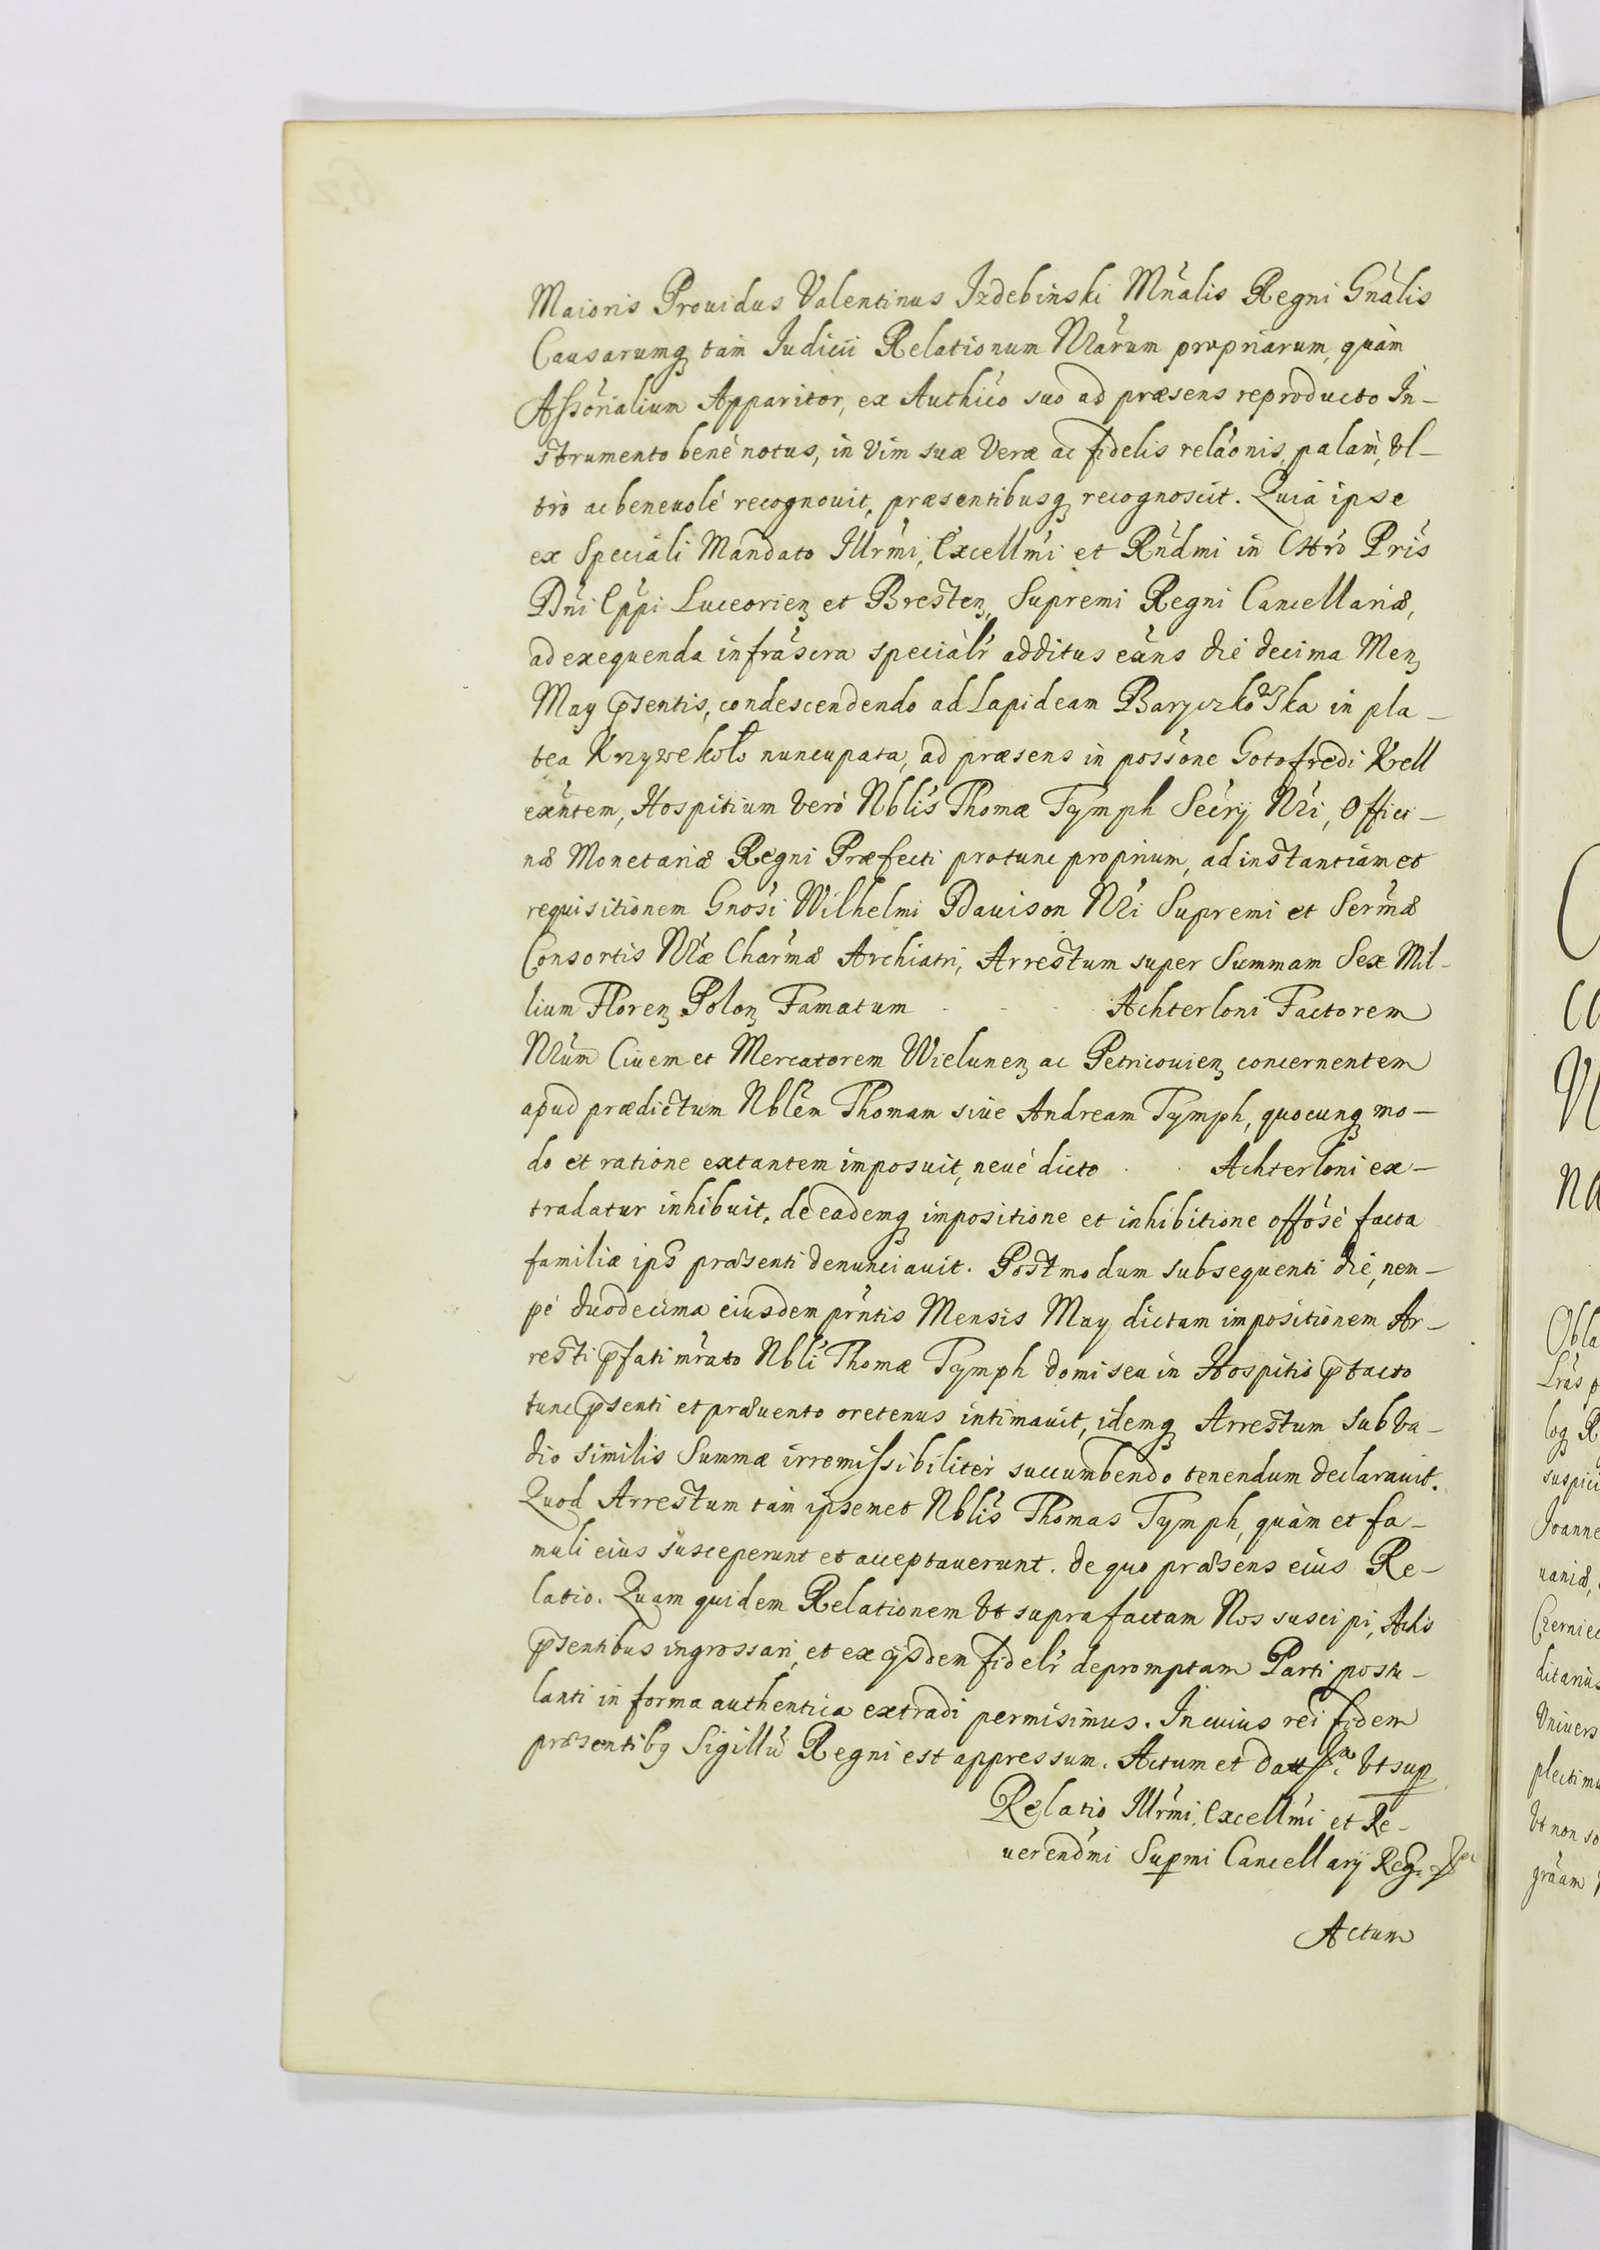 Maioris Prouidus Valentinus Izdebinski Mnalis Regni Gnalis
Causarumq tam Iudicii Relationum Nrarum propriarum, quàm
Assorialium Apparitor, ex Authico suo ad præsens reproducto In-
strumento benè notus, in vim suæ veræ ac fidelis relaonis, palàm, vl-
trò ac beneuolè recognouit, præsentibusq recognoscit. Quià ipse
ex Speciali Mandato Illrmi, Excellmi et Rndmi in Chro Pris
Dni Eppi Luceorien et Bresten, Supremi Regni Cancellariæ,
ad exequenda infrascra specialr additus eans die decima Men
May psentis, condescendendo ad Lapideam Baryczkowska in pla-
tea Krzywe koło nuncupata, ad præsens in possone Gotofredi Krell
exntem, Hospitium verò Nblis Thomæ Tymph Secrij Nri, Offici-
næ Monetariæ Regni Præfecti protunc proprium, ad instantiam et
requisitionem Gnosi Wilhelmi Dauison Nri Supremi et Sermæ
Consortis Nræ Charmæ Archiatri, Arrestum super Summam Sex Mil-
lium Floren Polon Famatum Achterloni Factorem
Nrum Ciuem et Mercatorem Wielunen ac Petricouien concernentem
apud prædictum Nblem Thomam siue Andream Tymph, quocunq mo-
do et ratione extantem imposuit, neuè dicto Achterloni ex-
tradatur inhibuit, de eademq impositione et inhibitione offosè facta
familiæ ips præsenti denunciauit. Postmodum subsequenti die, nem-
pè duodecima eiusdem prntis Mensis May dictam impositionem Ar-
resti pfati mrato Nbli Thomæ Tymph domi seu in Hospitio ptacto
tunc psenti et præuento oretenus intimauit, idemq Arrestum sub va-
dio similis Summæ irremissibilitèr succumbendo tenendum declarauit.
Quod Arrestum tam ipsemet Nblis Thomas Tymph, quàm et fa-
muli eius susceperunt et acceptauerunt. de quo præsens eius Re-
latio. Quam quidem Relationem vt supra factam Nos suscipi, Actis
psentibus ingrossari, et ex ijsdem fidelr depromptam Parti postu-
lanti in forma authentica extradi permisimus. In cuius rei fidem
præsentibq Sigillu Regni est appressum. Actum et datt vt sup
Relatio Illrmi, Excellmi et Re-
uerendmi Supmi Cancellarij Reg.
Actum